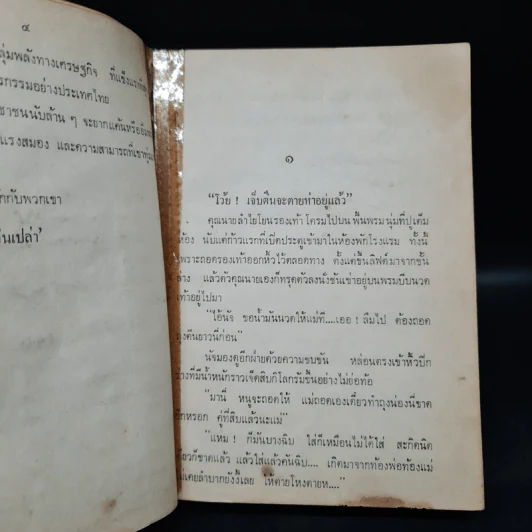 ๔
ลุ่มพลังทางเศรษฐกิจ ที่แข็งแรง
รกรรมอย่างประเทศไทย
ชาชนนับล้าน ๆ จะยากแค้นหรือ
แรงสมอง และความสามารถที่เขาทุ่ม
ักกับพวกเขา
นเปล่า’
๑
“โว้ย ! เจ็บตีนจะตายห่าอยู่แล้ว”
คุณนายลำไยโยนรองเท้า โครมไปบน พื้นพรม นุ่มที่ปูเต็ม
ห้อง นับแต่ก้าวแรกที่เปิดประตูเข้ามาในห้องพักโรงแรม ทั้งนี้
เพราะถอดรองเท้าออกหิ้วไว้ตลอดทาง ตั้งแต่ขึ้นลิฟต์มาจากชั้น
ล่าง แล้วตัวคุณนายเองก็ทรุดตัวลงนั่งชันเข่าอยู่บนพรมบีบนวด
เท้าอยู่ไปมา
“ไอ้นัจ ขอน้ำมันนวดให้แม่ที....เออ ! ลืมไป ต้องถอด
ถุงตีนยาวนี่ก่อน”
นัจมองดูอีกฝ่ายด้วยความขบขัน หล่อนตรงเข้าหิ้วปีก
ร่างที่มีน้ำหนักราวเจ็ดสิบกิโลกรัมขึ้นอย่างไม่ย่อท้อ
“มานี่ หนูจะถอดให้ แม่ถอดเองเดี๋ยวทำถุงน่องนี่ขาด
อีกหรอก คู่ที่สิบแล้วนะแม่”
“แหม ! ก็มันบางฉิบ ใส่ก็เหมือนไม่ได้ใส่ สะกิดนิด
เดียวก็ขาดแล้ว แล้วใส่แล้วคันฉิบ.... เกิดมาจากท้องพ่อท้องแม่
ไม่เคยลำบากยังงี้เลย ให้ตายโหงตายห....”